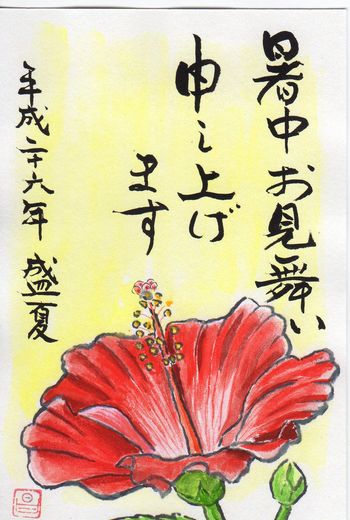 暑中お見舞い
申し上げ
ます
平成二十六年 盛夏